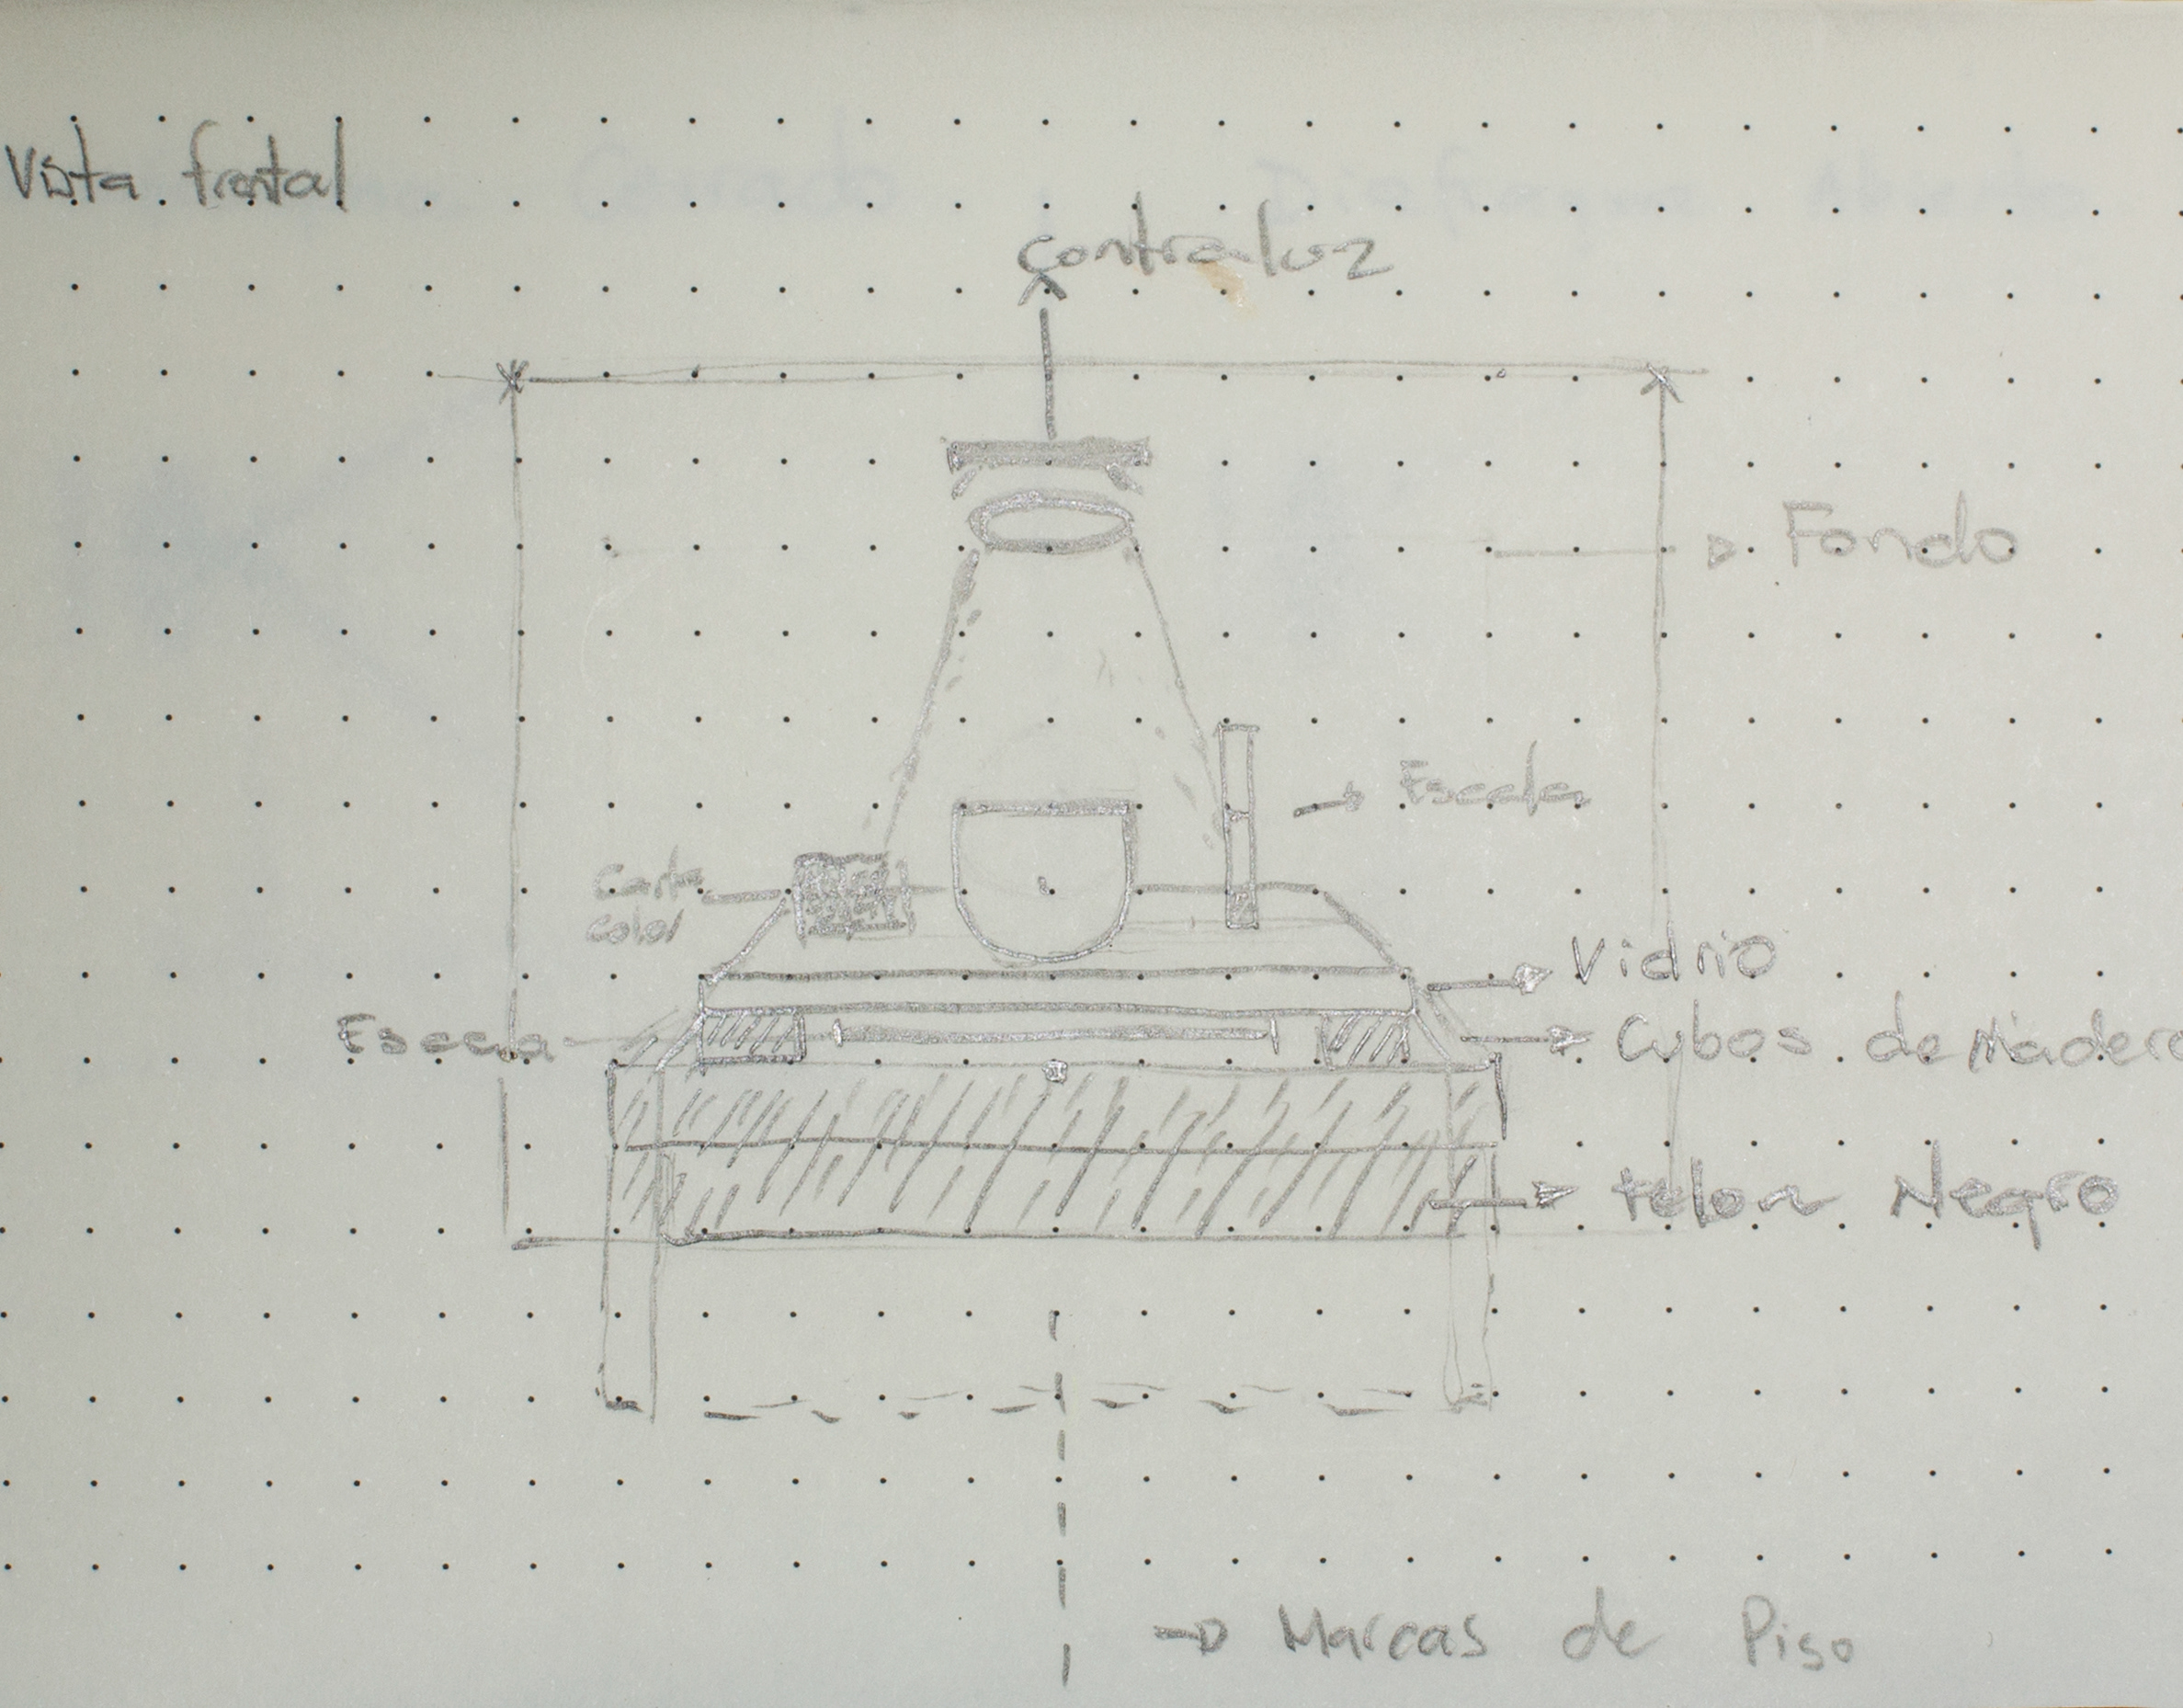 Vista frontal
contraluz
Fondo
Escala
Carta
color
Vidrio
Escala
Cubos de Madera
telon Negro
Marcas de Piso